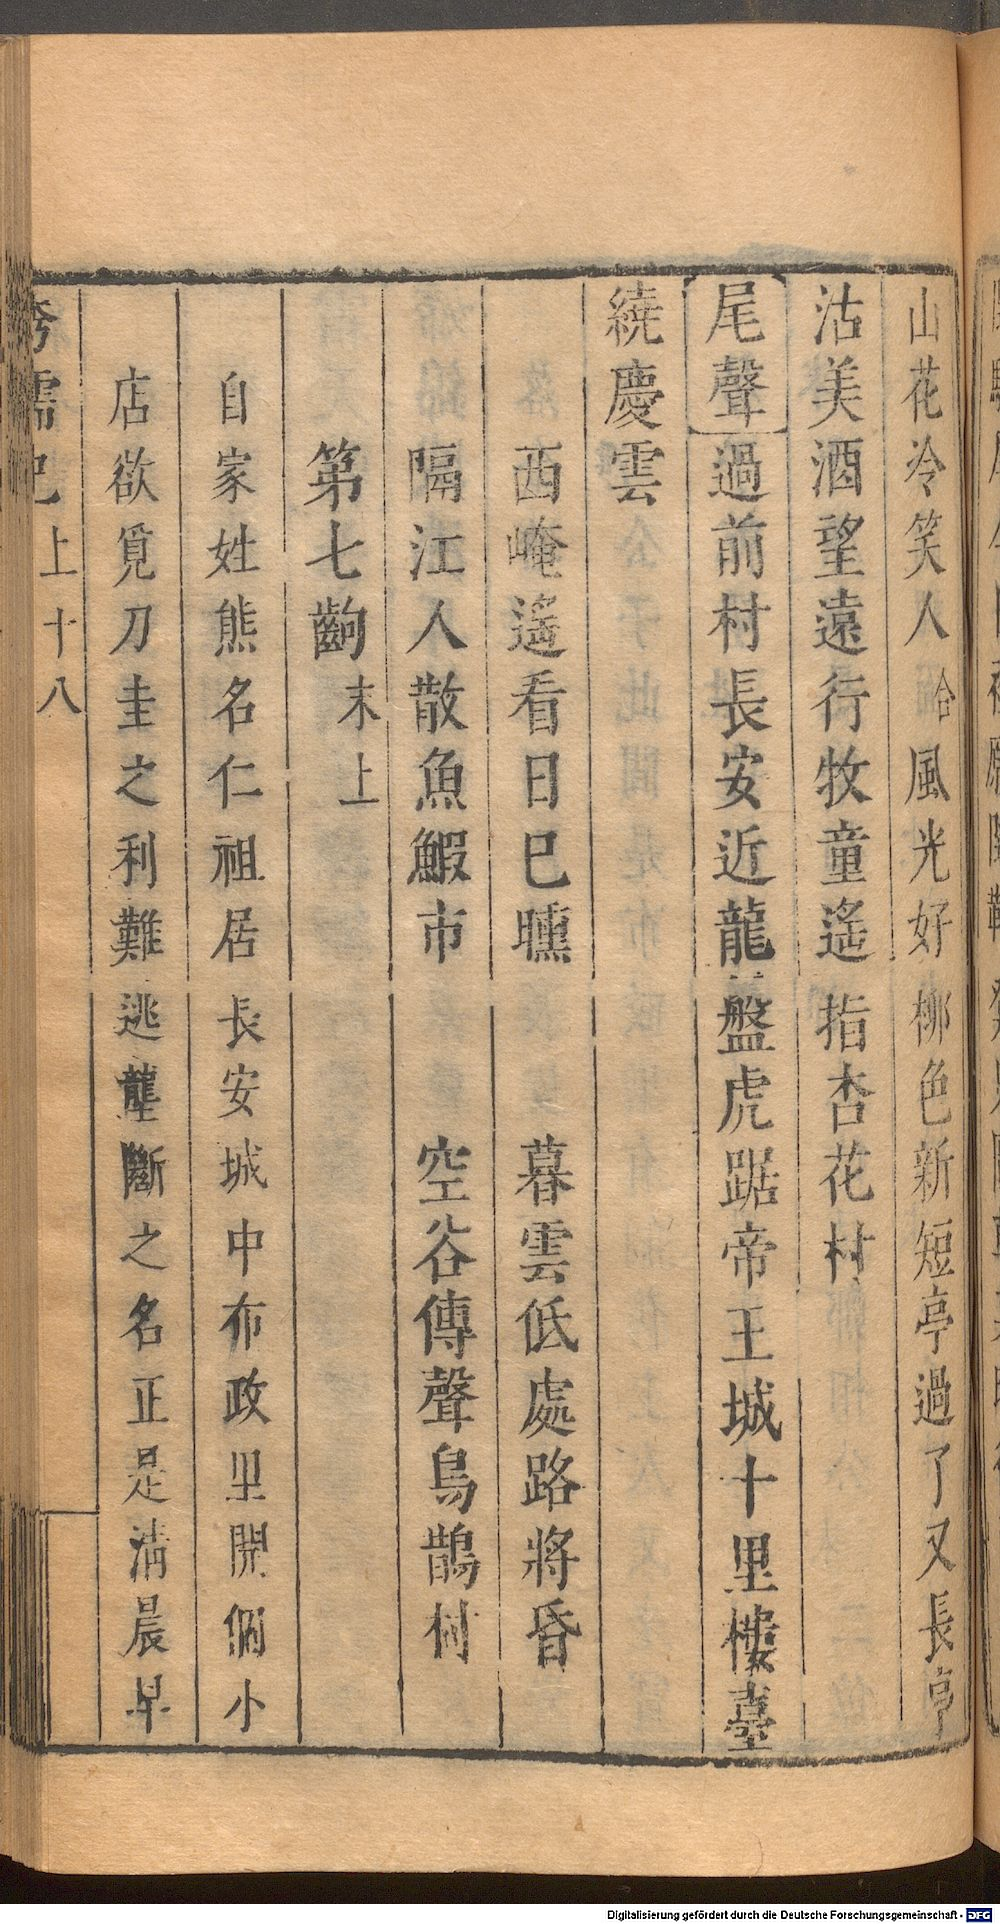 山花冷笑人合風光好柳色新短亭過了又長亭
沽美酒望遠行牧童遙指杏花村
尾聲過前村長安近龍盤虎踞帝王城十里樓臺
繞慶雲
西崦遙看日已曛　暮雲低處路將昏
隔江人散魚鰕市　空谷傳聲鳥鵲村
第七齣末上
自家姓熊名仁祖居長安城中布政里開個小
店欲覓刀圭之利難逃壟斷之名正是清晨早
上十八
Digitalisierung gefördert durch die Deutsche Forschungsgemeinschaft - DFG